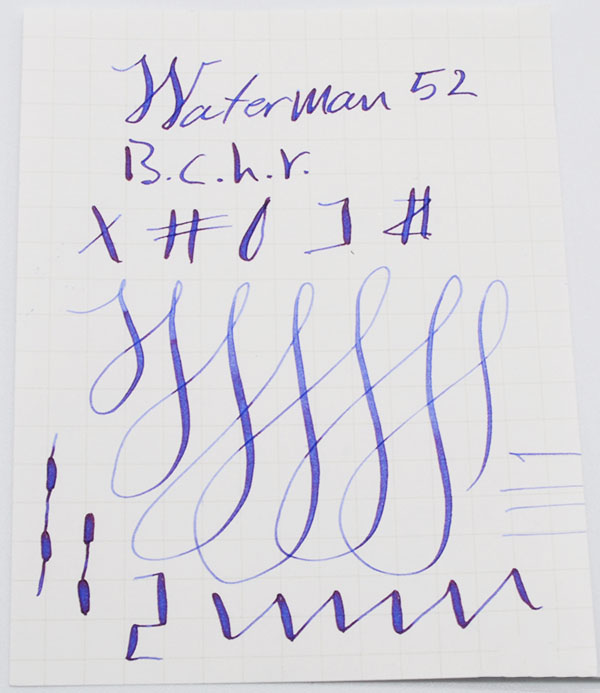 Waterman 52
B.c.h.r.
X # 0 ] #